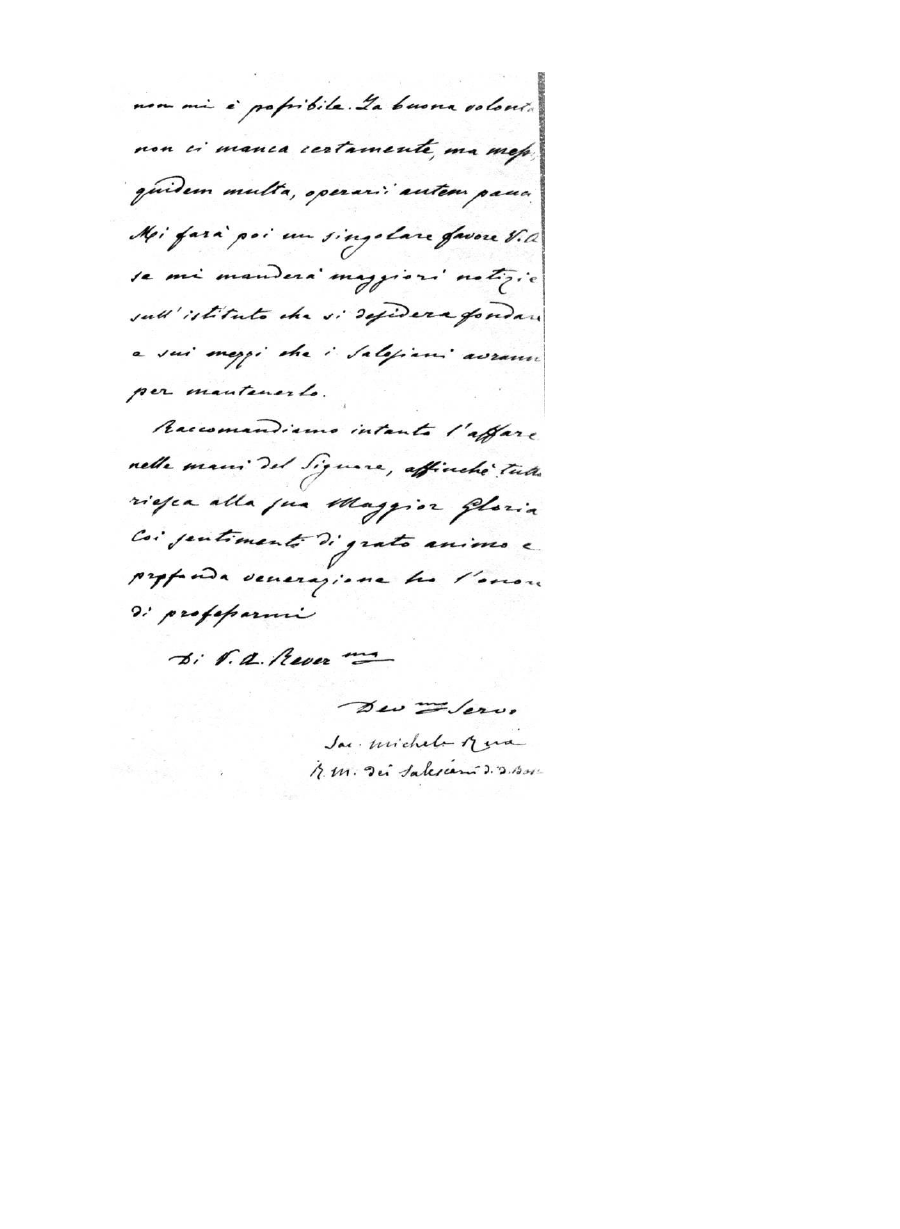 non mi è possibile. La buona volontà
non ci manca certamente, ma mess
quidem multa, operarii autem pauci
Mi farà poi un singolare favore V. A
se mi manderà maggiori notizie
sull'istituto che si desidera fondare
e sui mezzi che i Salesiani avrann
per mantenerlo.
Raccomandiamo intanto l'affare
nelle mani del Signore, affinchè tutto
riesca alla sua Maggior Gloria
Coi sentimenti di grato animo e
profonda venerazione ho l'onor
di professarmi
Di V. A. Rever ma
Dev mo Servo
Sac. Michele Rua
R. M. dei Salesiani d. D. Bos